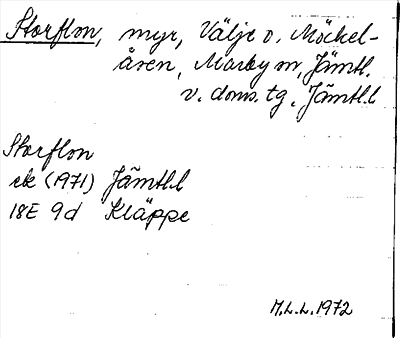 Storflon, myr, Välje o. Möckel-
åsen, Marby sn, Jämtl.
v. doms. tg, Jämtl.l
Storflon
ek (1971) Jämtl.l
18E 9d Kläppe
M.L.L. 1972